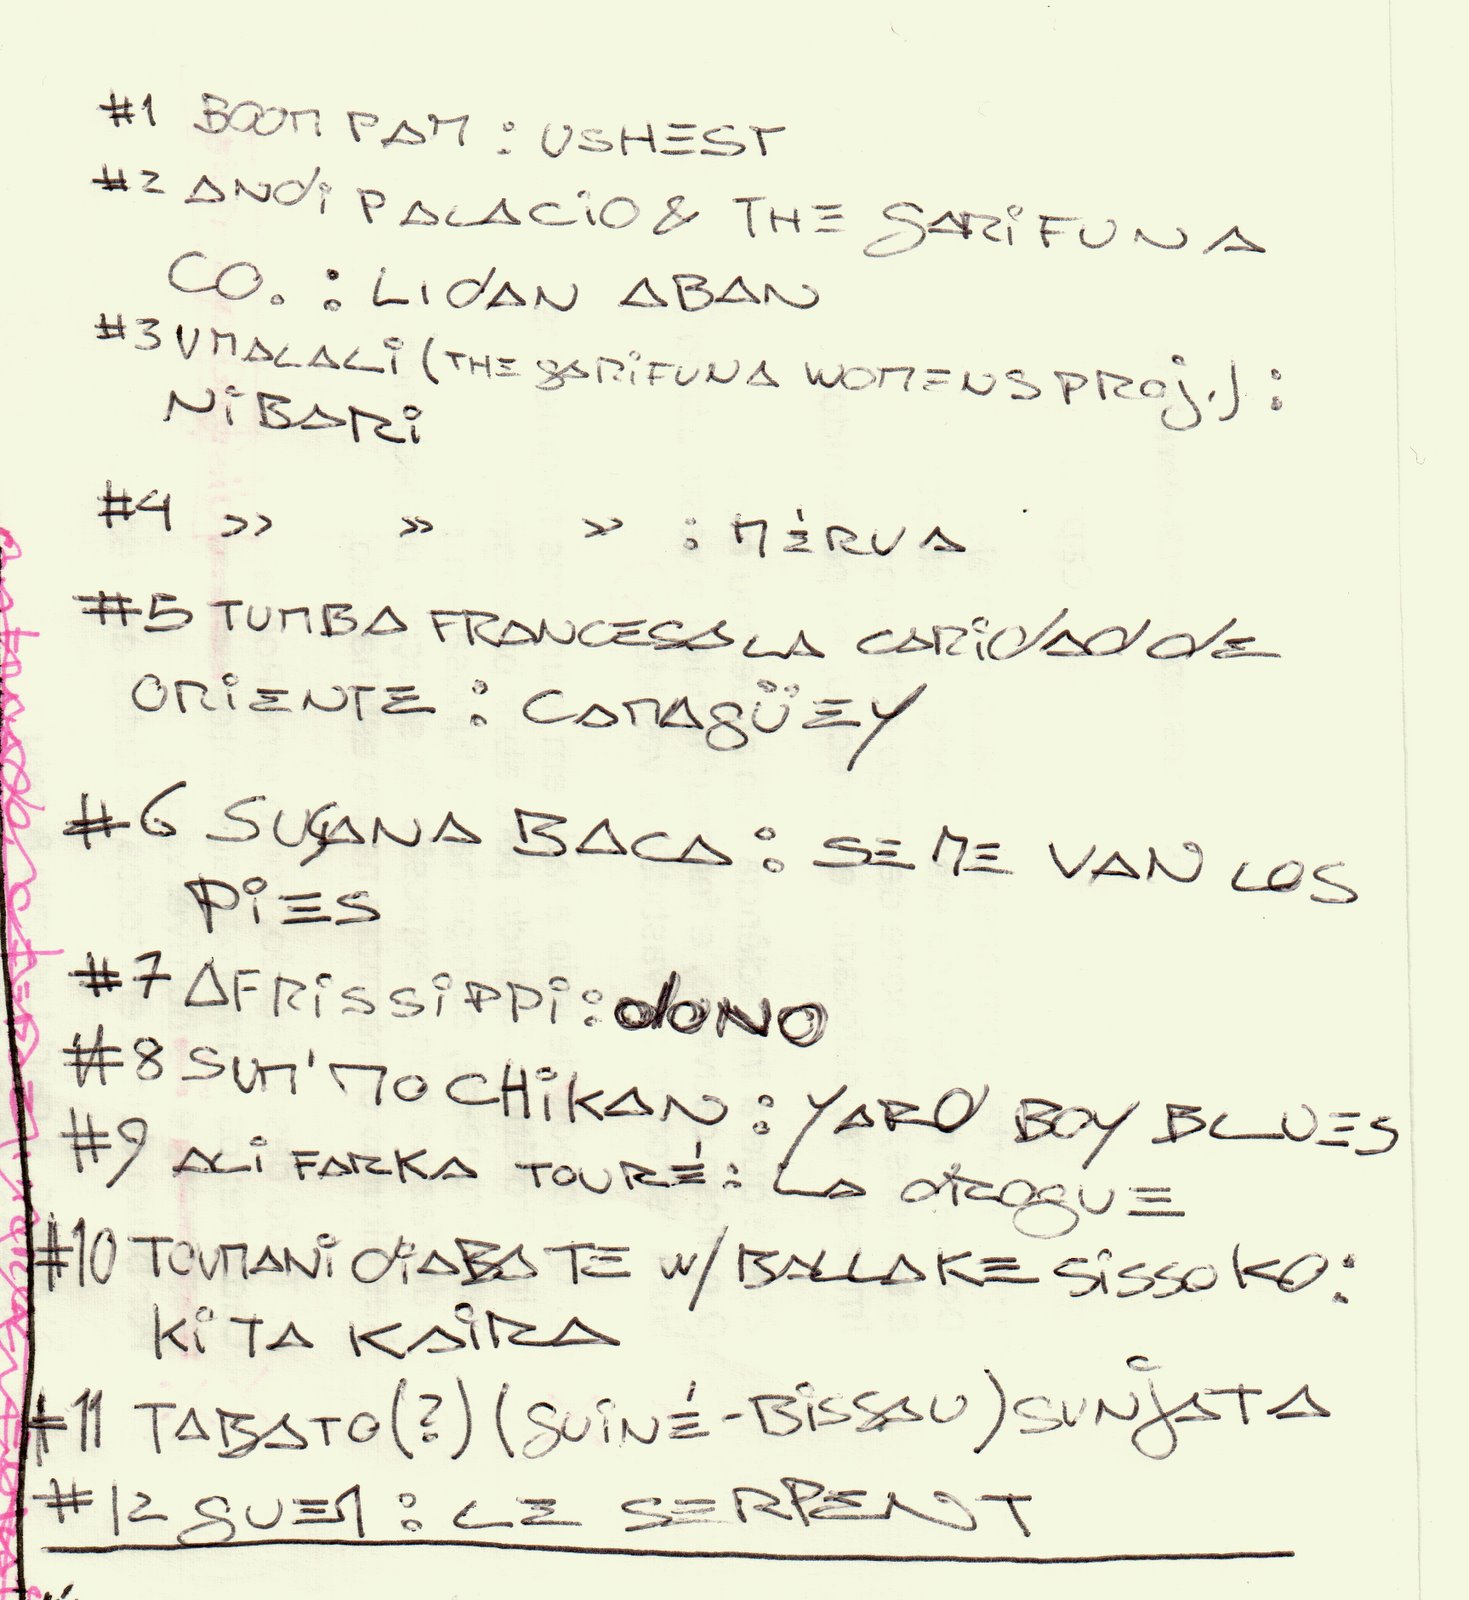 #1 BOOM PAM : USHEST
#2 ANDi PALACiO & THE GARiFUNA
CO. : LIDAN ABAN
#3 UMALALi (THE GARiFUNA WOMENS PROj.) :
NiBARi
#4 >> >> >> : MÉRUA
#5 TUMBA FRANCESA LA CARiDAD DE
ORiENTE : CAMAGÜEY
#6 SUSANA BACA : SE ME VAN LOS
PiES
#7 AFRiSSiPPi : DONO
#8 SUM' MO CHiKAN : YARD BOY BLUES
#9 ALi FARKA TOURÉ : LA DROGUE
#10 TOUMANi DiABATE W/ BALLAKE SiSSOKO :
KiTA KAiRA
#11 TABATO (?) (GUiNÉ-BiSSAU) SUNjATA
#12 GUEM : LE SERPENT